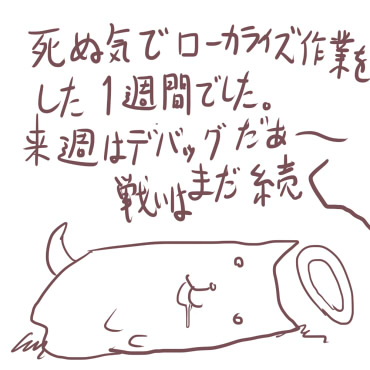 死ぬ気でローカライズ作業を
した1週間でした。
来週はデバッグだぁ〜
戦いはまだ続く